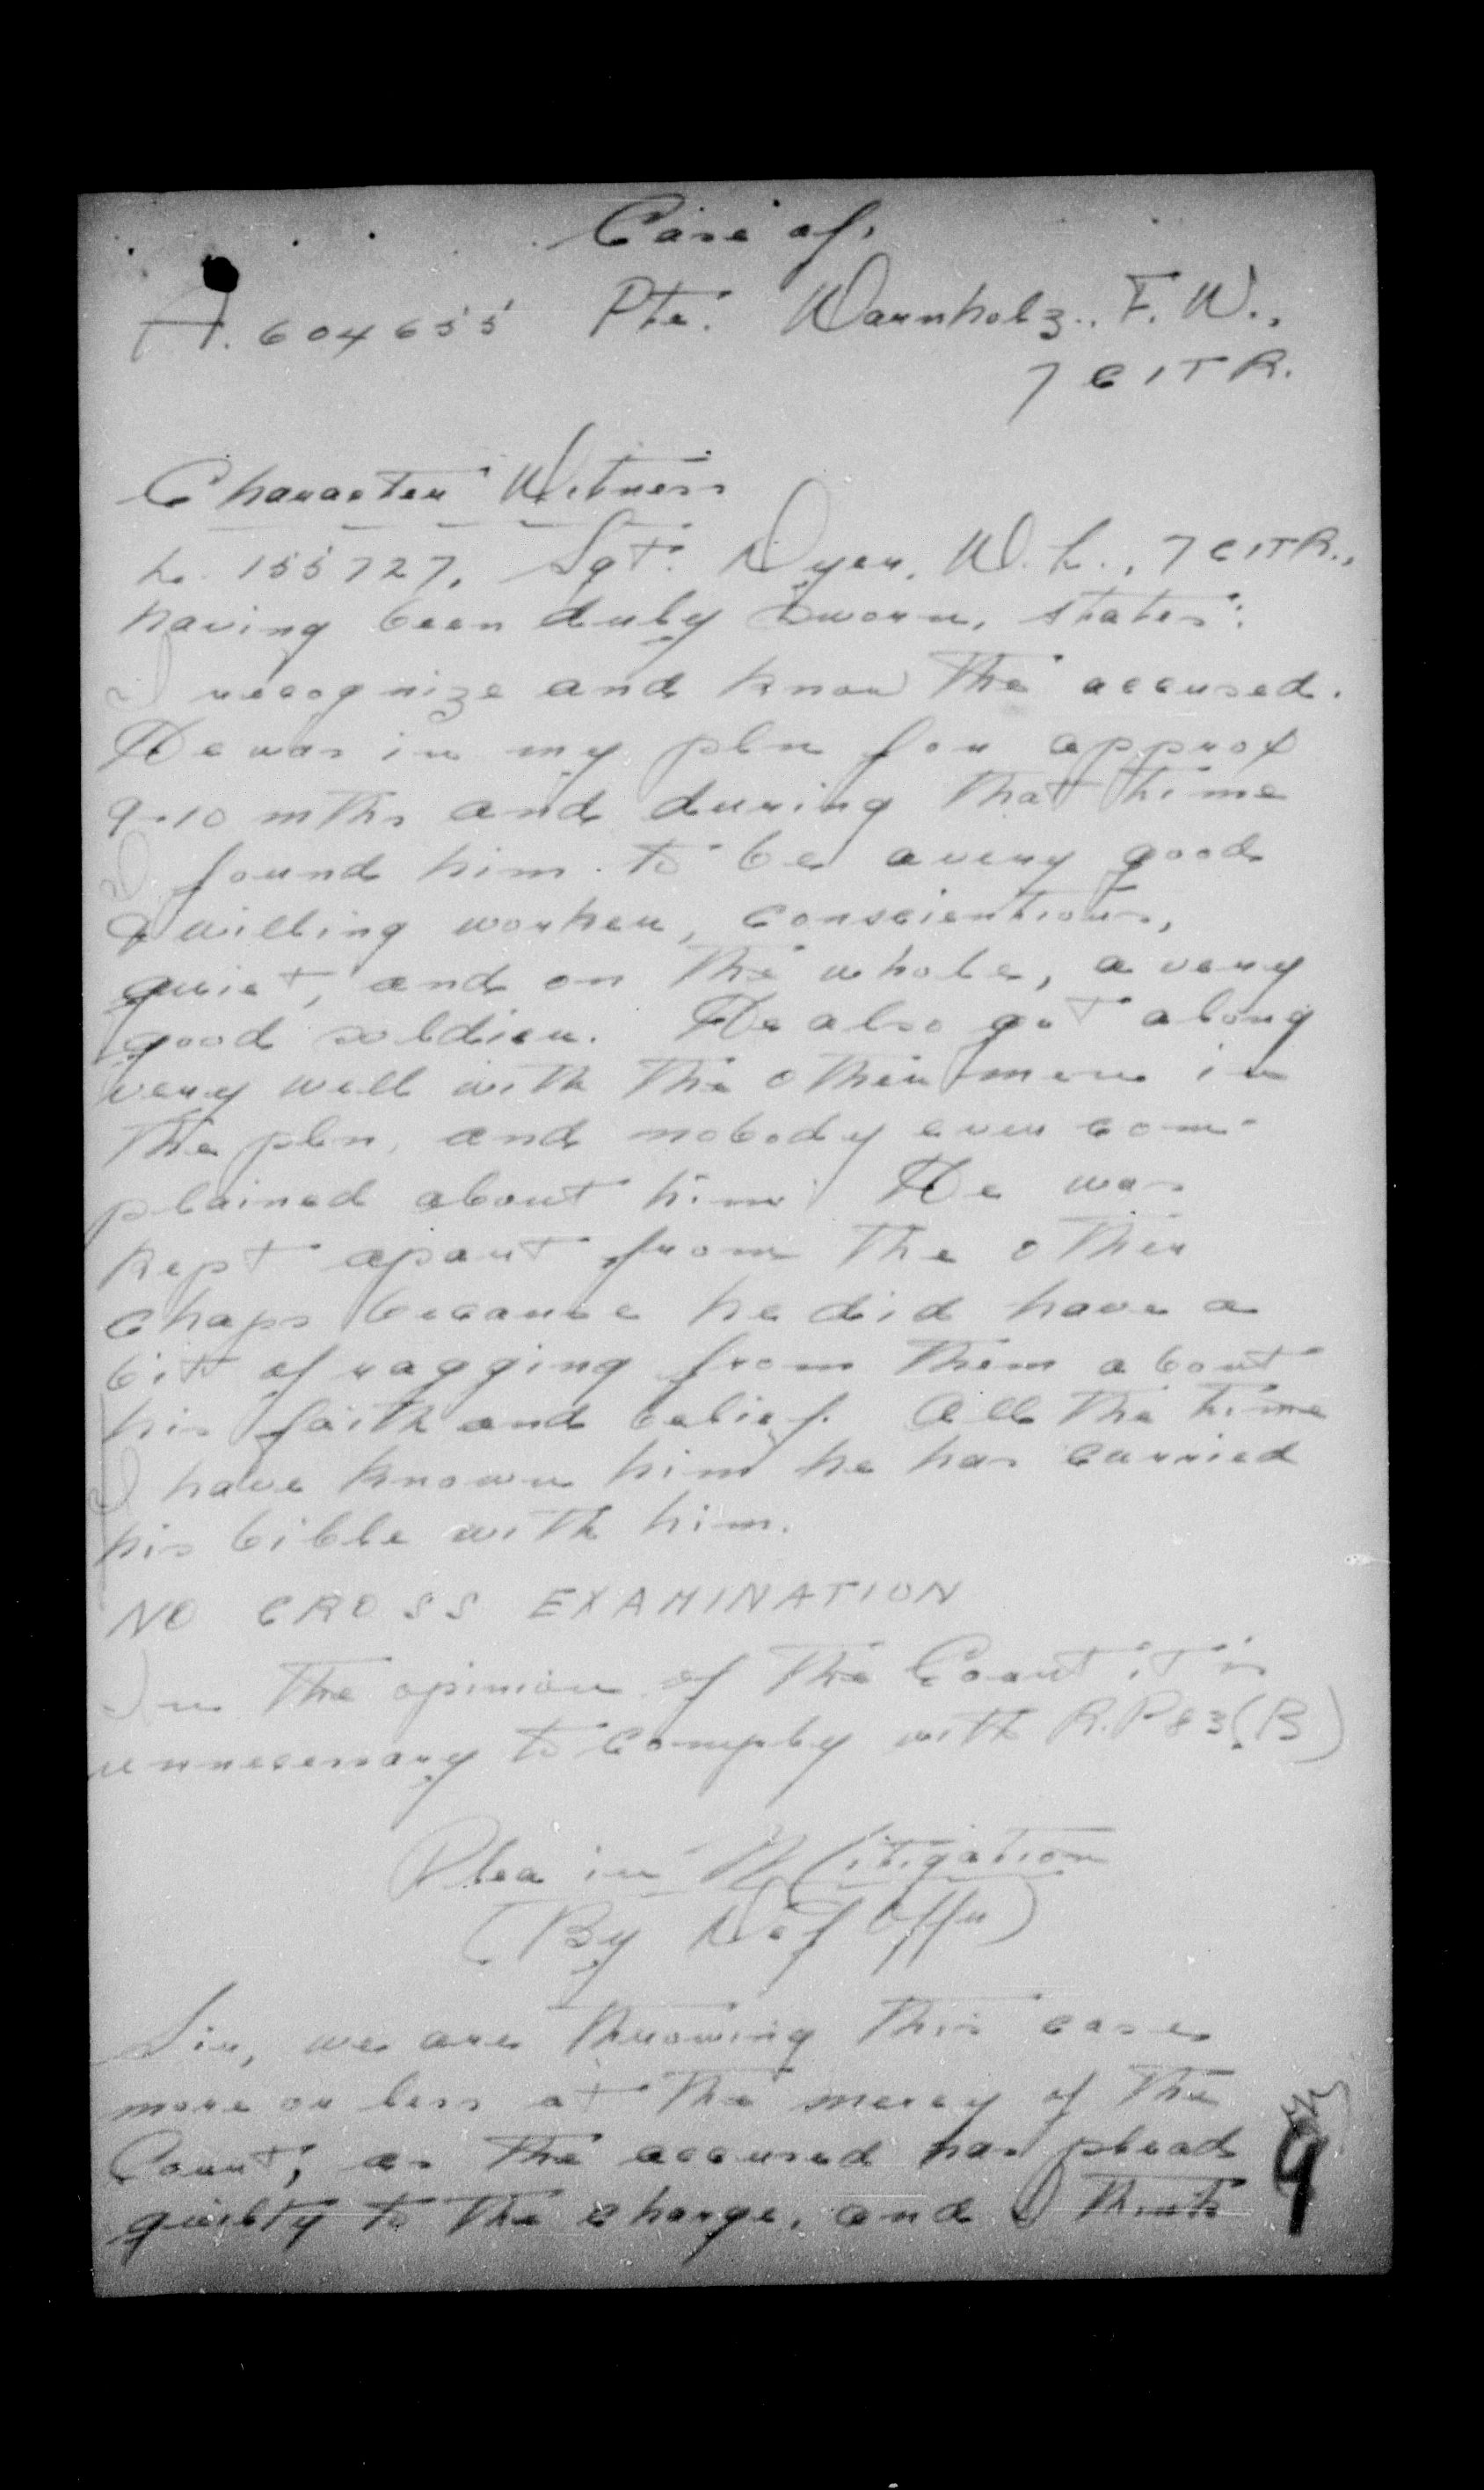 Case of.
A. 604655 Pte. Warnholz. F. W.,
7 CITR.
Character Witness
L. 155727, Sgt. Dyer, W. L., 7 CITR.,
having been duly sworn, states:
I recognize and know the accused.
He was in my pln for approx
9-10 mths and during that time
I found him to be a very good
& willing worker, conscientious,
quiet, and on the whole, a very
good soldier. He also got along
very well with the other men in
the pln, and nobody ever com-
plained about him. He was
kept apart from the other
chaps because he did have a
bit of ragging from them about
his faith and belief. All the time
I have known him he has carried
his bible with him.
NO CROSS EXAMINATION
In the opinion of the Court it is
unnecessary to comply with R.P 83(B)
Plea in Mitigation
(By Def Offr)
Sir, we are throwing this case
more or less at the mercy of the
Court, as the accused has plead
guilty to the charge, and I think
9